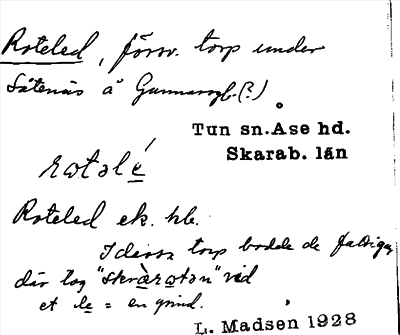 Roteled, försv. torp under
Såtenäs å Gunnarsgb.(?)
Tun sn. Åse hd.
Skarab. län
rɷtəlé
Roteled ek. hb.
I dessa torp bodde de fattiga,
där låg "skràrɷtən" vid
et le = en grind.
L. Madsen 1928